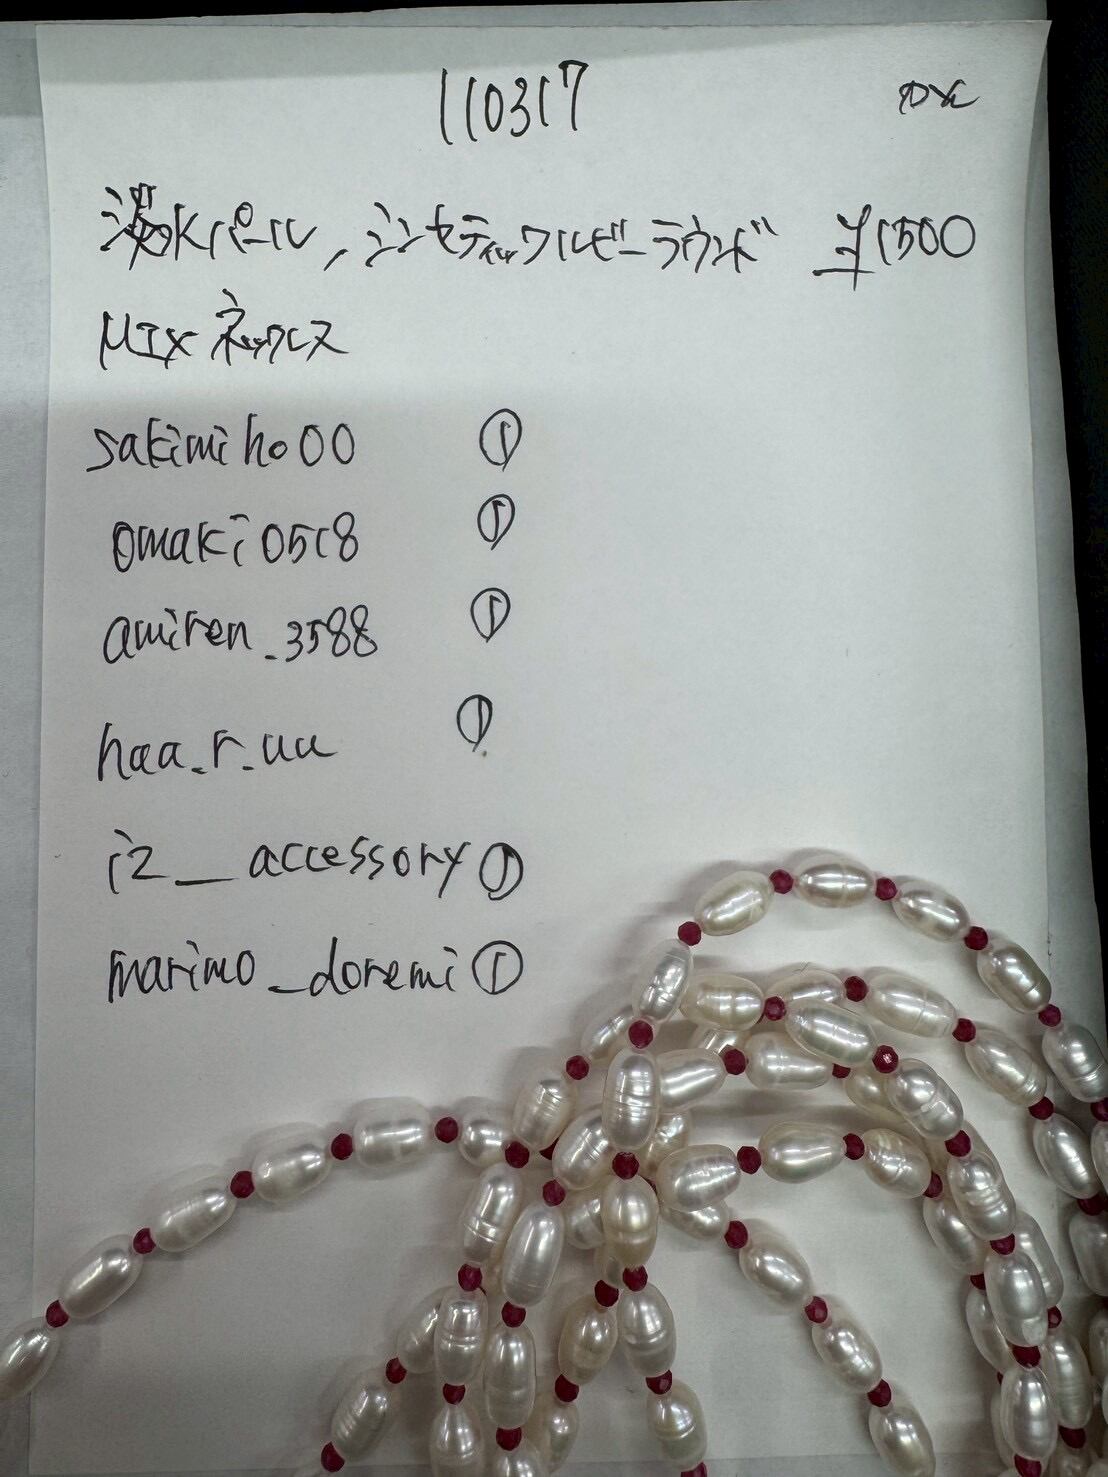 110317
淡水パール,シンセティックルビーラウンド ¥1500
MIXネックレス
sakimiho00 ①
omaki0518 ①
amiren_3588 ①
haa_r_uu ①
i2__accessory ①
marimo_doremi ①